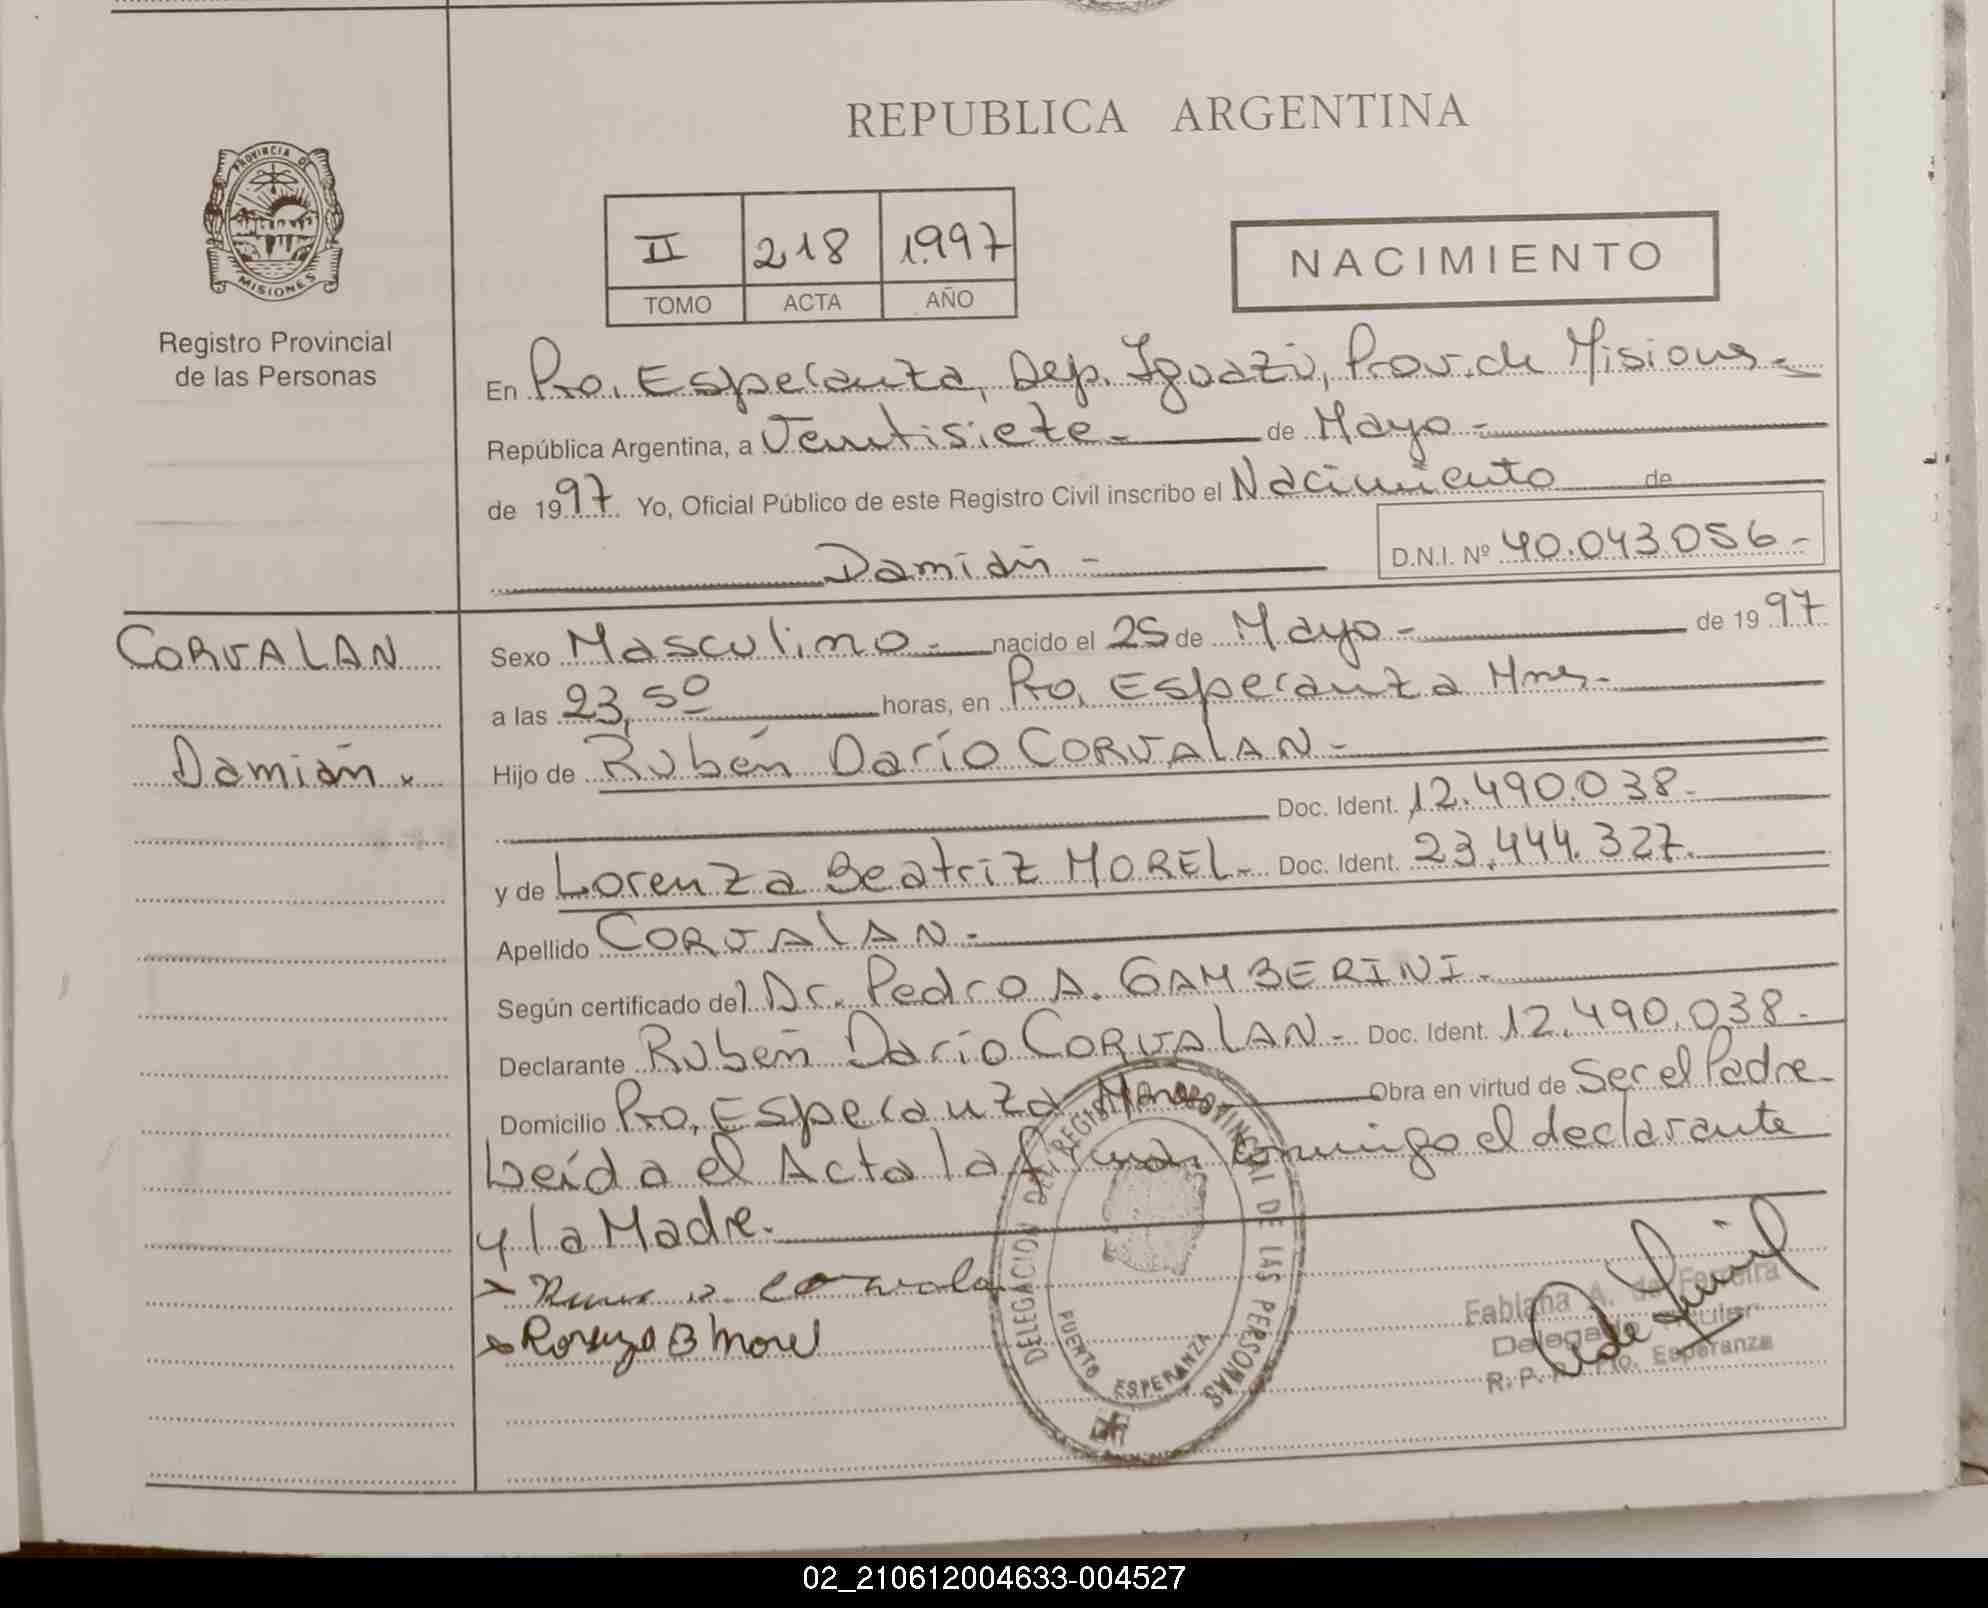 REPUBLICA ARGENTINA
PROVINCIA DE
MISIONES
Registro Provincial
de las Personas
II 218 1.997
TOMO ACTA AÑO
NACIMIENTO
En Pto. Esperanza, Dep. Iguazú, Prov. de Misiones.-
República Argentina, a Veintisiete.- de Mayo.-
de 1997 Yo, Oficial Público de este Registro Civil inscribo el Nacimiento de
Damián.- D.N.I. Nº 40.043.056.-
CORVALAN
Damián.
Sexo Masculino.- nacido el 25 de Mayo.- de 1997
a las 23,50 horas, en Pto. Esperanza Mnes.-
Hijo de Rubén Darío CORVALAN.-
Doc. Ident. 12.490.038.-
y de Lorenza Beatriz MOREL.- Doc. Ident. 23.444.327.-
Apellido CORVALAN.-
Según certificado del Dr. Pedro A. GAMBERINI.-
Declarante Rubén Darío CORVALAN.- Doc. Ident. 12.490.038.-
Domicilio Pto. Esperanza Obra en virtud de Ser el Padre.-
Leída el Acta la firman conmigo el declarante
y la Madre.-
Lorenza B Morel
DELEGACION DEL REGISTRO PROVINCIAL DE LAS PERSONAS
PUERTO ESPERANZA
Fabiana A. de Ferreira
Delegada Titular
R. P. Pto. Esperanza
02_210612004633-004527